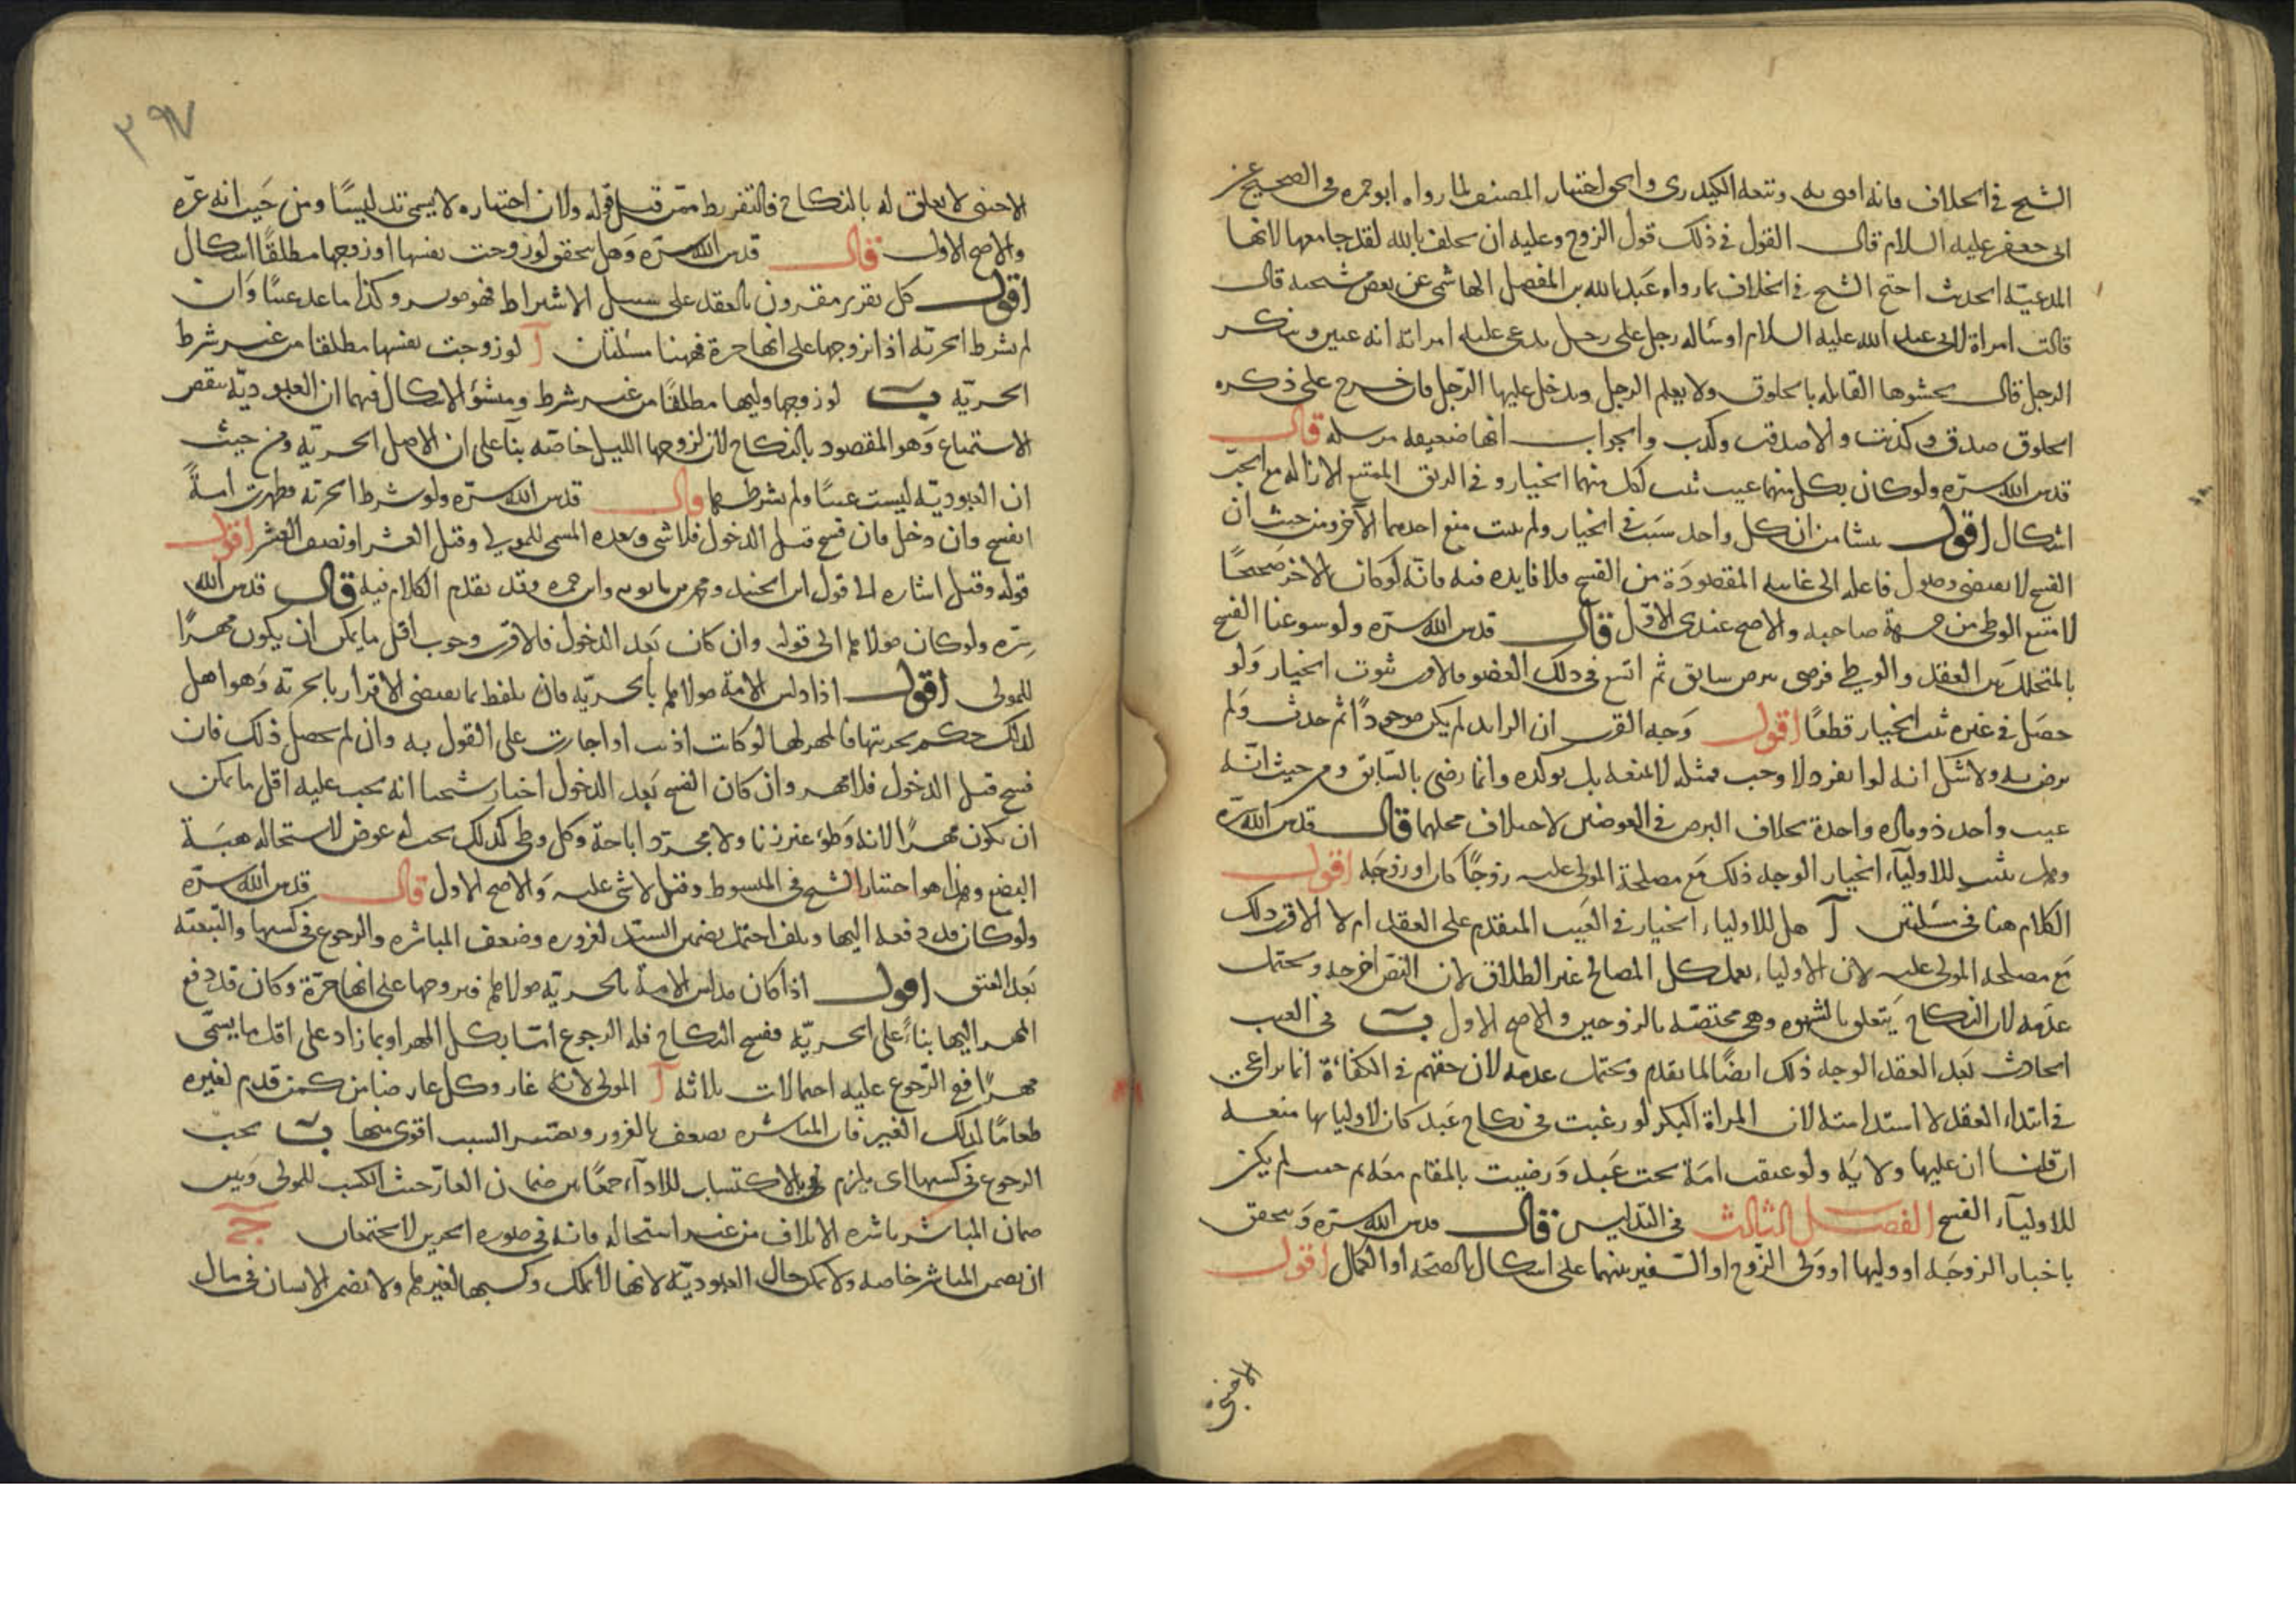 الشيخ في الخلاف فانه افتى به وتبعه الكيدرى والحق اختيار المصنف لما رواه ابو حمزه في الصحيح عن
ابى جعفر عليه السلام قال القول في ذلك قول الزوج وعليه ان يحلف بالله لقد جامعها لانها
المدعيّة الحديث احتج الشيخ في الخلاف بما رواه عبد الله بن المفضل الهاشمى عن بعض مشيخته قال
قالت امراة لابى عبد الله عليه السلام او ساله رجل على رجل يدعى عليه امراته انه عنين وينكر
الرجل قال يحشوها القابله بالخلوق ولا يعلم الرجل ويدخل عليها الرّجل فان خرج على ذكره
الخلوق صدق وكذبت والا صدقت وكذب والجواب انها ضعيفه مرسله قال
قدس الله سرّه ولو كان بكل منهما عيب ثبت لكل منهما الخيار وفي الرتق الممتنع الازاله مع الجبّ
اشكال اقول ينشا من ان كل واحد سبَب في الخيار ولم يثبت منع احدهما الآخر ومن حيث ان
الفسخ لا يقتضى وصول فاعله الى غايته المقصودَة من الفسخ فلا فايده فيه فانّه لو كان الاخر صَحيحًا
لامتنع الوطى من جهة صاحبه والاصح عندى الاوّل قال قدس الله سرّه ولو سوغنا الفسخ
بالمتخلل بين العقد والوطى فرضى ببرص سابق ثم اتسع في ذلك العضو فالاقرب ثبوت الخيار وَلو
حصَل في غيره ثبت الخيار قطعًا اقول وَجه القرب ان الزايد لم يكن موجودًا ثم حدث وَلم
يرض به ولا شك انه لو انفرد لاوجب فمثله لا تمنعه بل يوكده وانما رضى بالسّابق ومن حيث انّه
عيب واحد ذو مادة واحدة بخلاف البرص في العوضين لاختلاف محلهما قال قدس الله سرّه
وهل يثبت للاولياء الخيار الوجه ذلك مَع مصلحة المولى عليه زوجًا كان او زوجَه اقول
الكلام هنا في مسئلتين آ هل للاولياء الخيار في العَيب المتقدم على العقد ام لا الاقرب ذلك
مَع مصلحة المولى عليه لان الاولياء بعمل كل المصالح غير الطلاق لان النص اخرجه ويحتمل
عدَمه لان النكاح يَتعلق بالشهوه وهى مختصّه بالزوجين والاصح الاول بَ في العيب
الحادث بَعد العقد الوجه ذلك ايضًا لما تقدم ويحتمل عدمه لان حقهم في الكفاءة انما يراعى
في ابتداء العقد لا استدامته لان المراة البكر لو رغبت في نكاح عَبد كان لاوليائها منعه
ان قلنا ان عليها ولايَه ولو عتقت امَة تحت عَبد وَرضيت بالمقام معَه لم يكن
للاولياء الفسخ الفصل الثالث في التدليس قال قدس الله سرّه وَيتحقق
باخبار الزوجَه او وليها او وَلى الزّوج او السّفير بينهما على اشكال بالصحّه او الكمال اقول
الاجنبى
٣٩٧
الاجنبى لا تعلق له بالنكاح فالتفريط ممّن قبل قوله ولان اخباره لا يسمى تدليسًا ومن حَيث انه غرّه
والاصح الاول قال قدس الله سرّه وَهل يتحقق لو زوجت نفسها او زوجها مطلقًا اشكال
اقول كل تقرير مقرون بالعقد على سبيل الاشتراط فهو موثر وكذا ما عد عيبًا وَان
لم يشرط الحريّه اذا تزوجها على انها حرة فههنا مسئلتان آ لو زوجت نفسها مطلقا من غير شرط
الحريّه بَ لو زوجها وليها مطلقًا من غير شرط ومنشؤ الاشكال فيهما ان العبوديّه ينقص
الاستمتاع وَهو المقصود بالنكاح لان لزوجها الليل خاصّه بنآ على ان الاصل الحريّه ومن حيث
ان العبوديّه ليست عيبًا ولم يشرطها قال قدس الله سرّه ولو شرط الحرّيه فظهرت امةً
انفسخ وان دخل فان فسخ قبل الدخول فلا شى وبَعده المسمى للمولى وقيل العشر او نصف العشر اقول
قوله وقيل اشاره الى قول ابن الجنيد ومحمد بن بابويه وابن حمزه وقد تقدم الكلام فيه قال قدس الله
سرّه ولو كان مولاها الى قوله وان كان بَعد الدخول فالاقرب وجوب اقل ما يمكن ان يكون مهرًا
للمولى اقول اذا دلس الامة مولاها بالحريّه فان تلفظ بما يقتضى الاقرار بالحرية وَهو اهل
لذلك حكم بحريتها فالمهر لها لو كانت اذنت او اجازت على القول به وان لم يحصل ذلك فان
فسخ قبل الدخول فلا مهر وان كان الفسخ بَعد الدخول اختار شيخنا انه يجب عليه اقل ما يمكن
ان تكون مهرًا لانه وَطؤ غير زنا ولا مجرّد اباحة وكل وطى كذلك يجب له عوض لاستحاله هبَة
البضع وهذا هو اختيار الشيخ في المبسوط وقيل لا شى عليه وَالاصح الاول قال قدس الله سرّه
ولو كان قد دفعه اليها وتلف احتمل تضمين السيّد لغروره وضعف المباشره والرجوع في كسبها والتبعيّه
بَعد العتق اقول اذا كان مدلس الامة بالحريّه مولاها فتزوجها على انها حرّة وكان قد دفع
المهر اليها بناءً على الحريّه ففسخ النكاح فله الرجوع امّا بكل المهر او بما زاد على اقل ما يسمّى
مهرًا فمع الرّجوع عليه احتمالات ثلاثه آ المولى لانه غار وكل غار ضامن كمن قدم لغيره
طعامًا لذلك الغير فان المباشره تضعف بالغرور ويصَير السبب اقوى منها بَ يجب
الرجوع في كسبها اى يلزم هى بالاكتساب للادآء جمعًا بين ضمان الغار حيث الكسب للمولى وَبين
ضمان المباشر باشره الاتلاف من غير استحاله فانه في صوره الحرين لا يجتمعان جَ
ان يضمن المباشر خاصه ولا يمكن حال العبوديّه لانها لا تملك وكسبها لغيرها ولا يضمن الانسان في مال